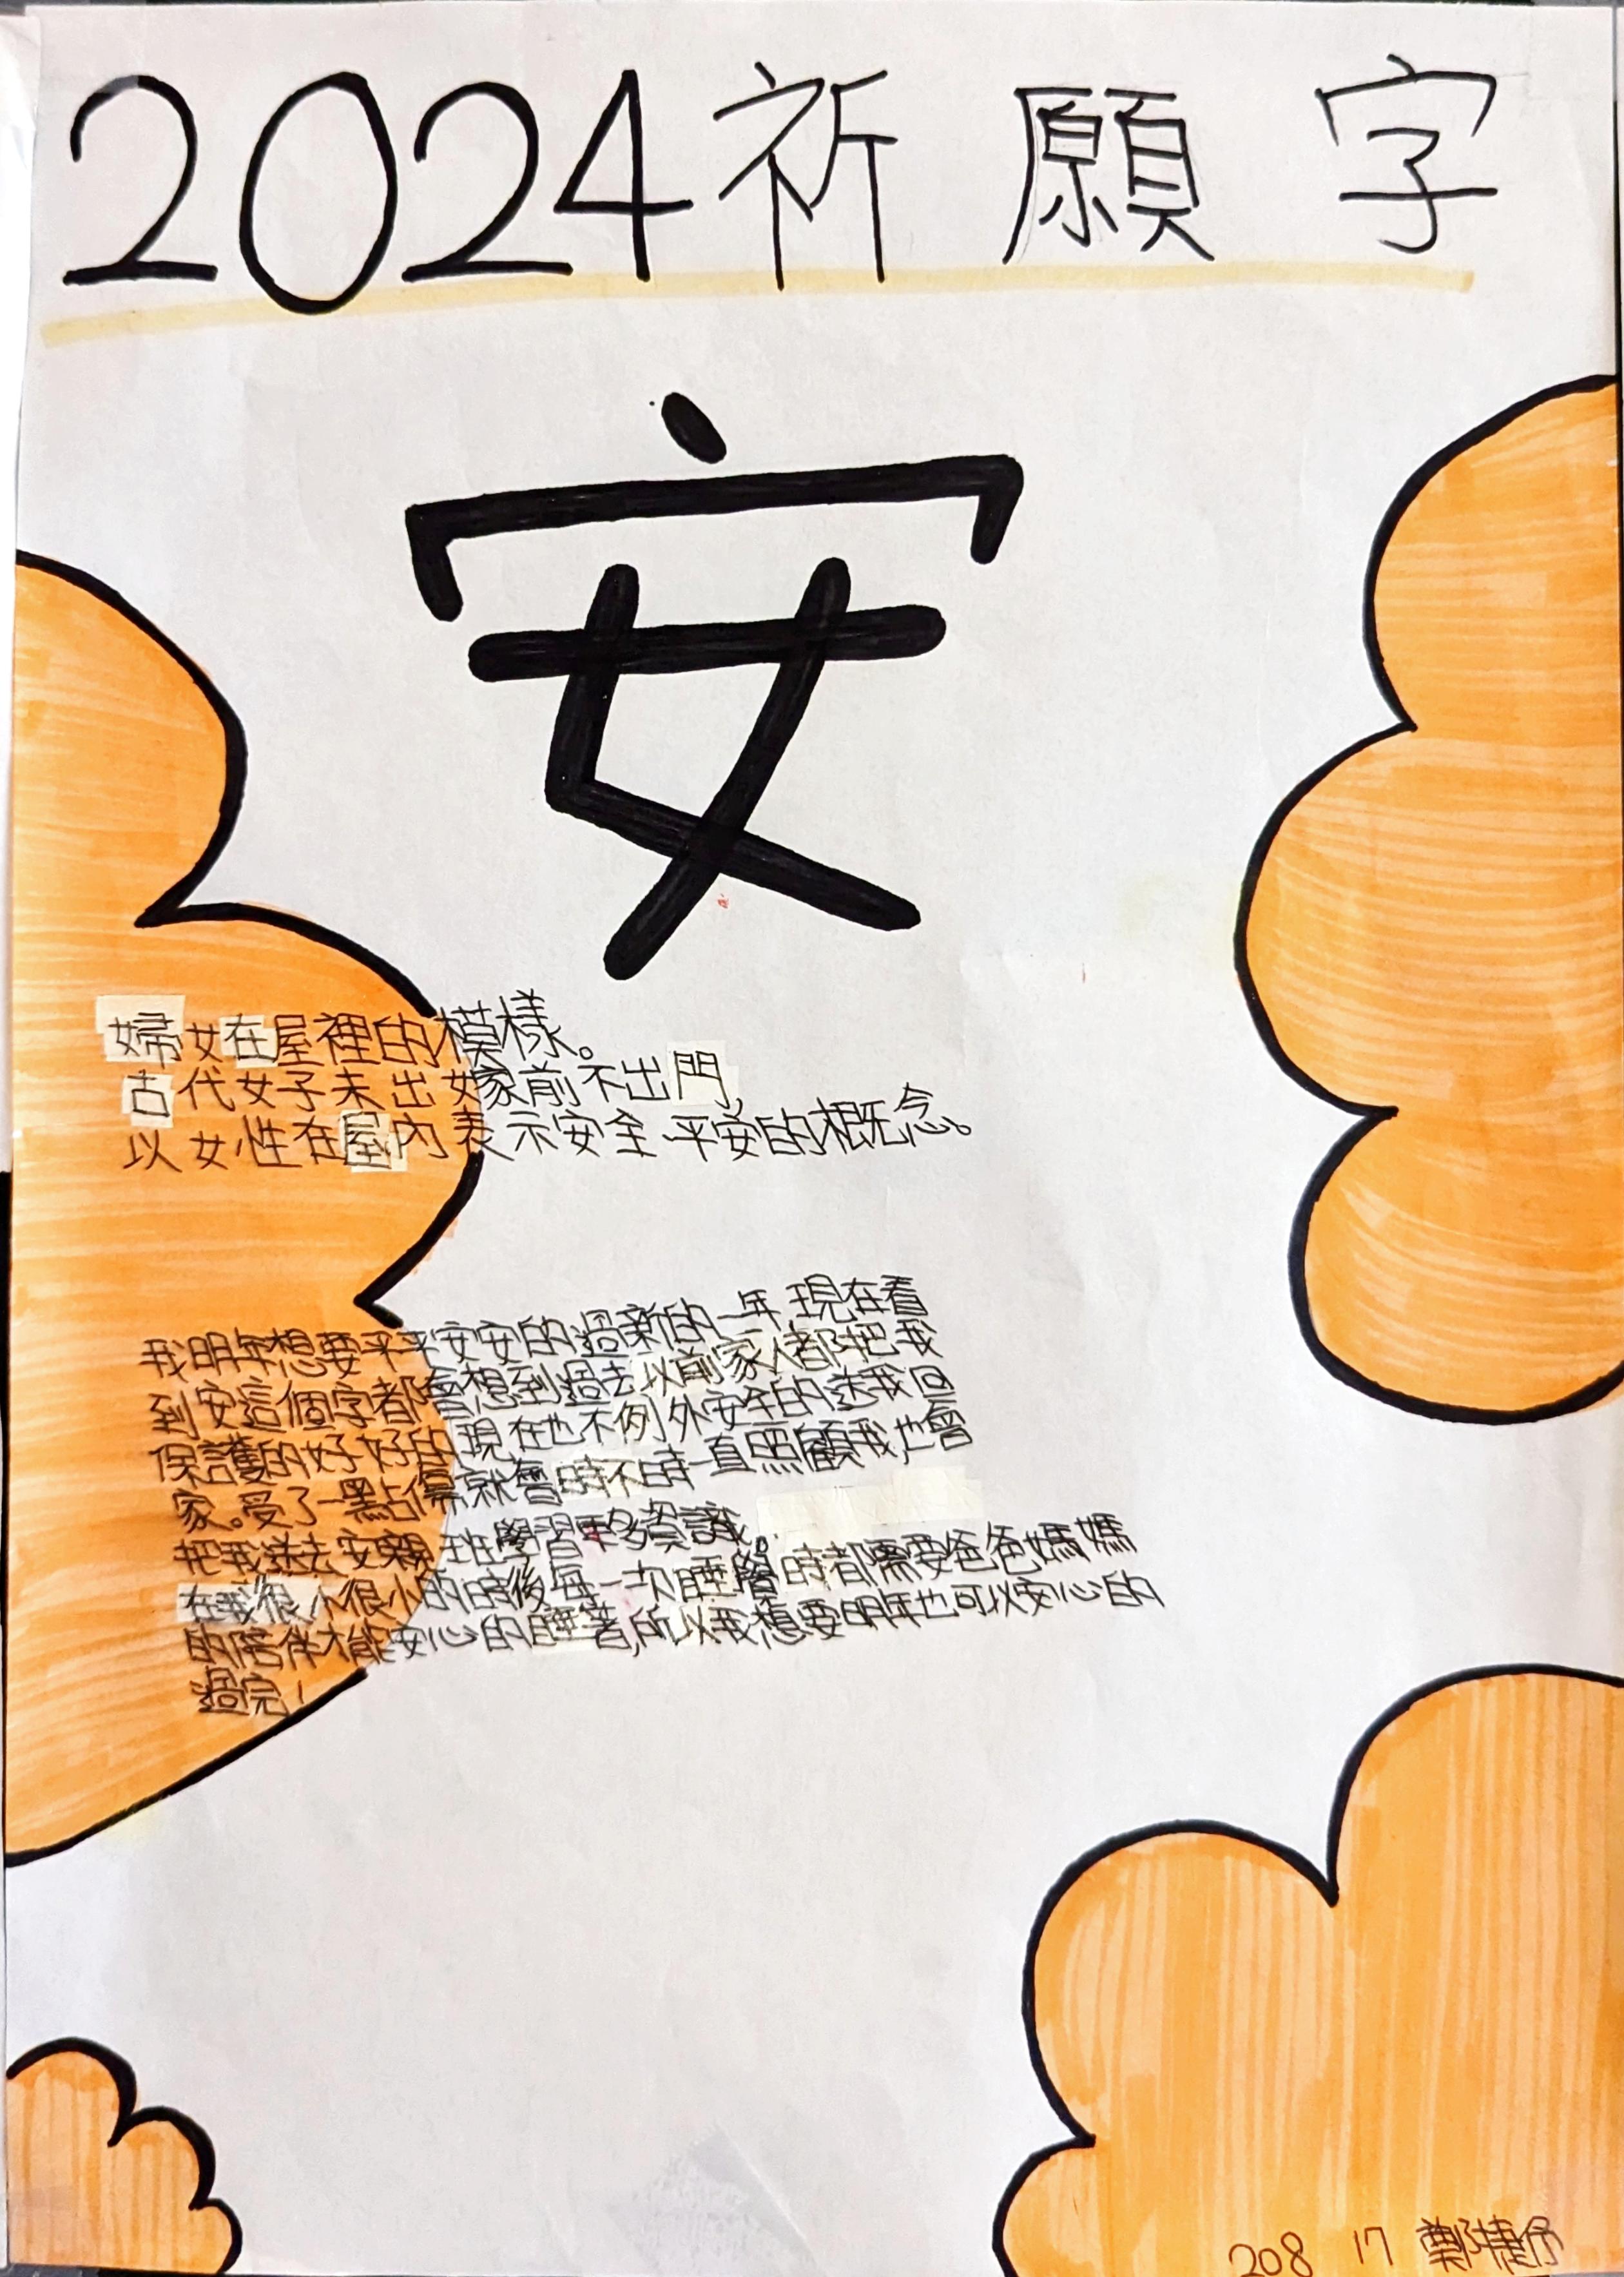 2024祈願字
安
婦女在屋裡的模樣。
古代女子未出嫁前不出門,
以女性在屋內表示安全、平安的概念。
我明年想要平平安安的過新的一年,現在看
到安這個字都會想到過去以前家人都把我
保護的好好的,現在也不例外安全的送我回
家。受了一點傷就會時不時一直照顧我,也會
把我送去安親班學習更多資識。
在我很小很小的時後每一次睡覺時都需要爸爸媽媽
的陪伴才能安心的睡著,所以我想要明年也可以安心的
過完!
208 17 鄭捷伃